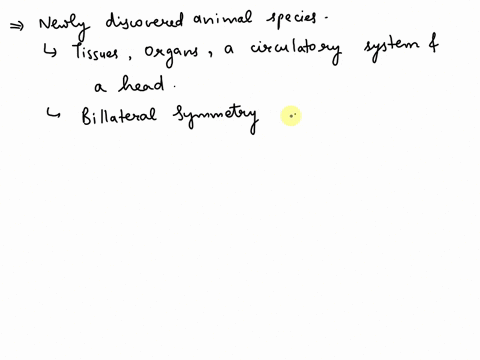 ⇒ Newly discovered animal species.
↳ Tissues, organs, a circulatory system &
a head.
↳ Billateral Symmetry